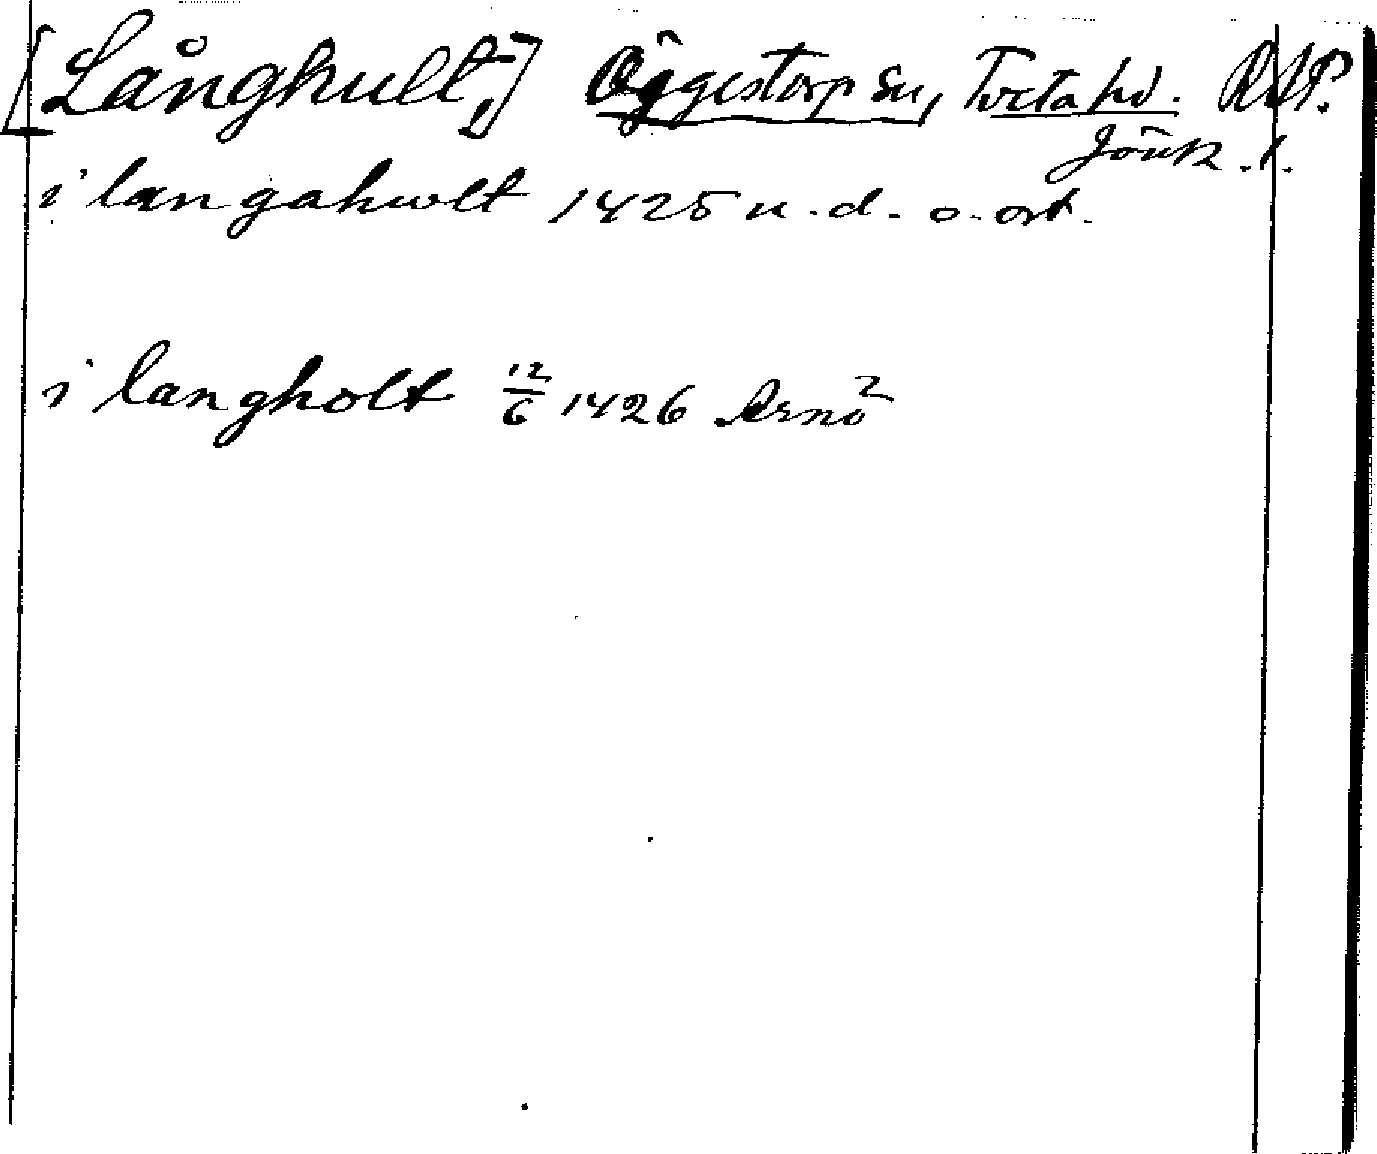 [Långhult,] Öggestorp sn, Tveta hd. RAP.
Jönk. l.
i langahwlt 1425 u. d. o. ort.
i langholt 12/6 1426 Arnö